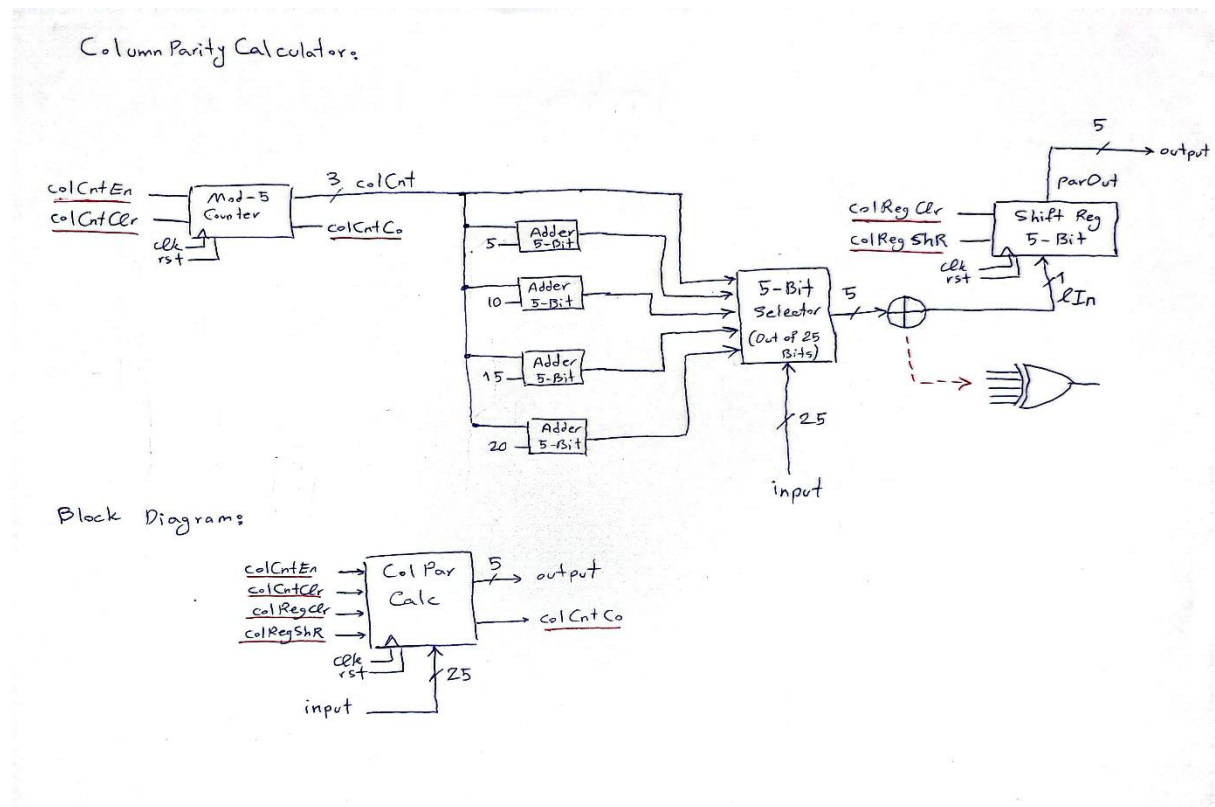 Column Parity Calculator:
colCntEn
colCntClr
Mod-5
Counter
clk
rst
3 colCnt
colCntCo
5
Adder
5-Bit
10
Adder
5-Bit
15
Adder
5-Bit
20
Adder
5-Bit
5-Bit
Selector
(Out of 25
Bits)
25
input
5
colRegClr
colRegShR
Shift Reg
5-Bit
clk
rst
1
lIn
parOut
5
output
Block Diagram:
colCntEn
colCntClr
colRegClr
colRegShR
Col Par
Calc
clk
rst
5
output
colCntCo
25
input